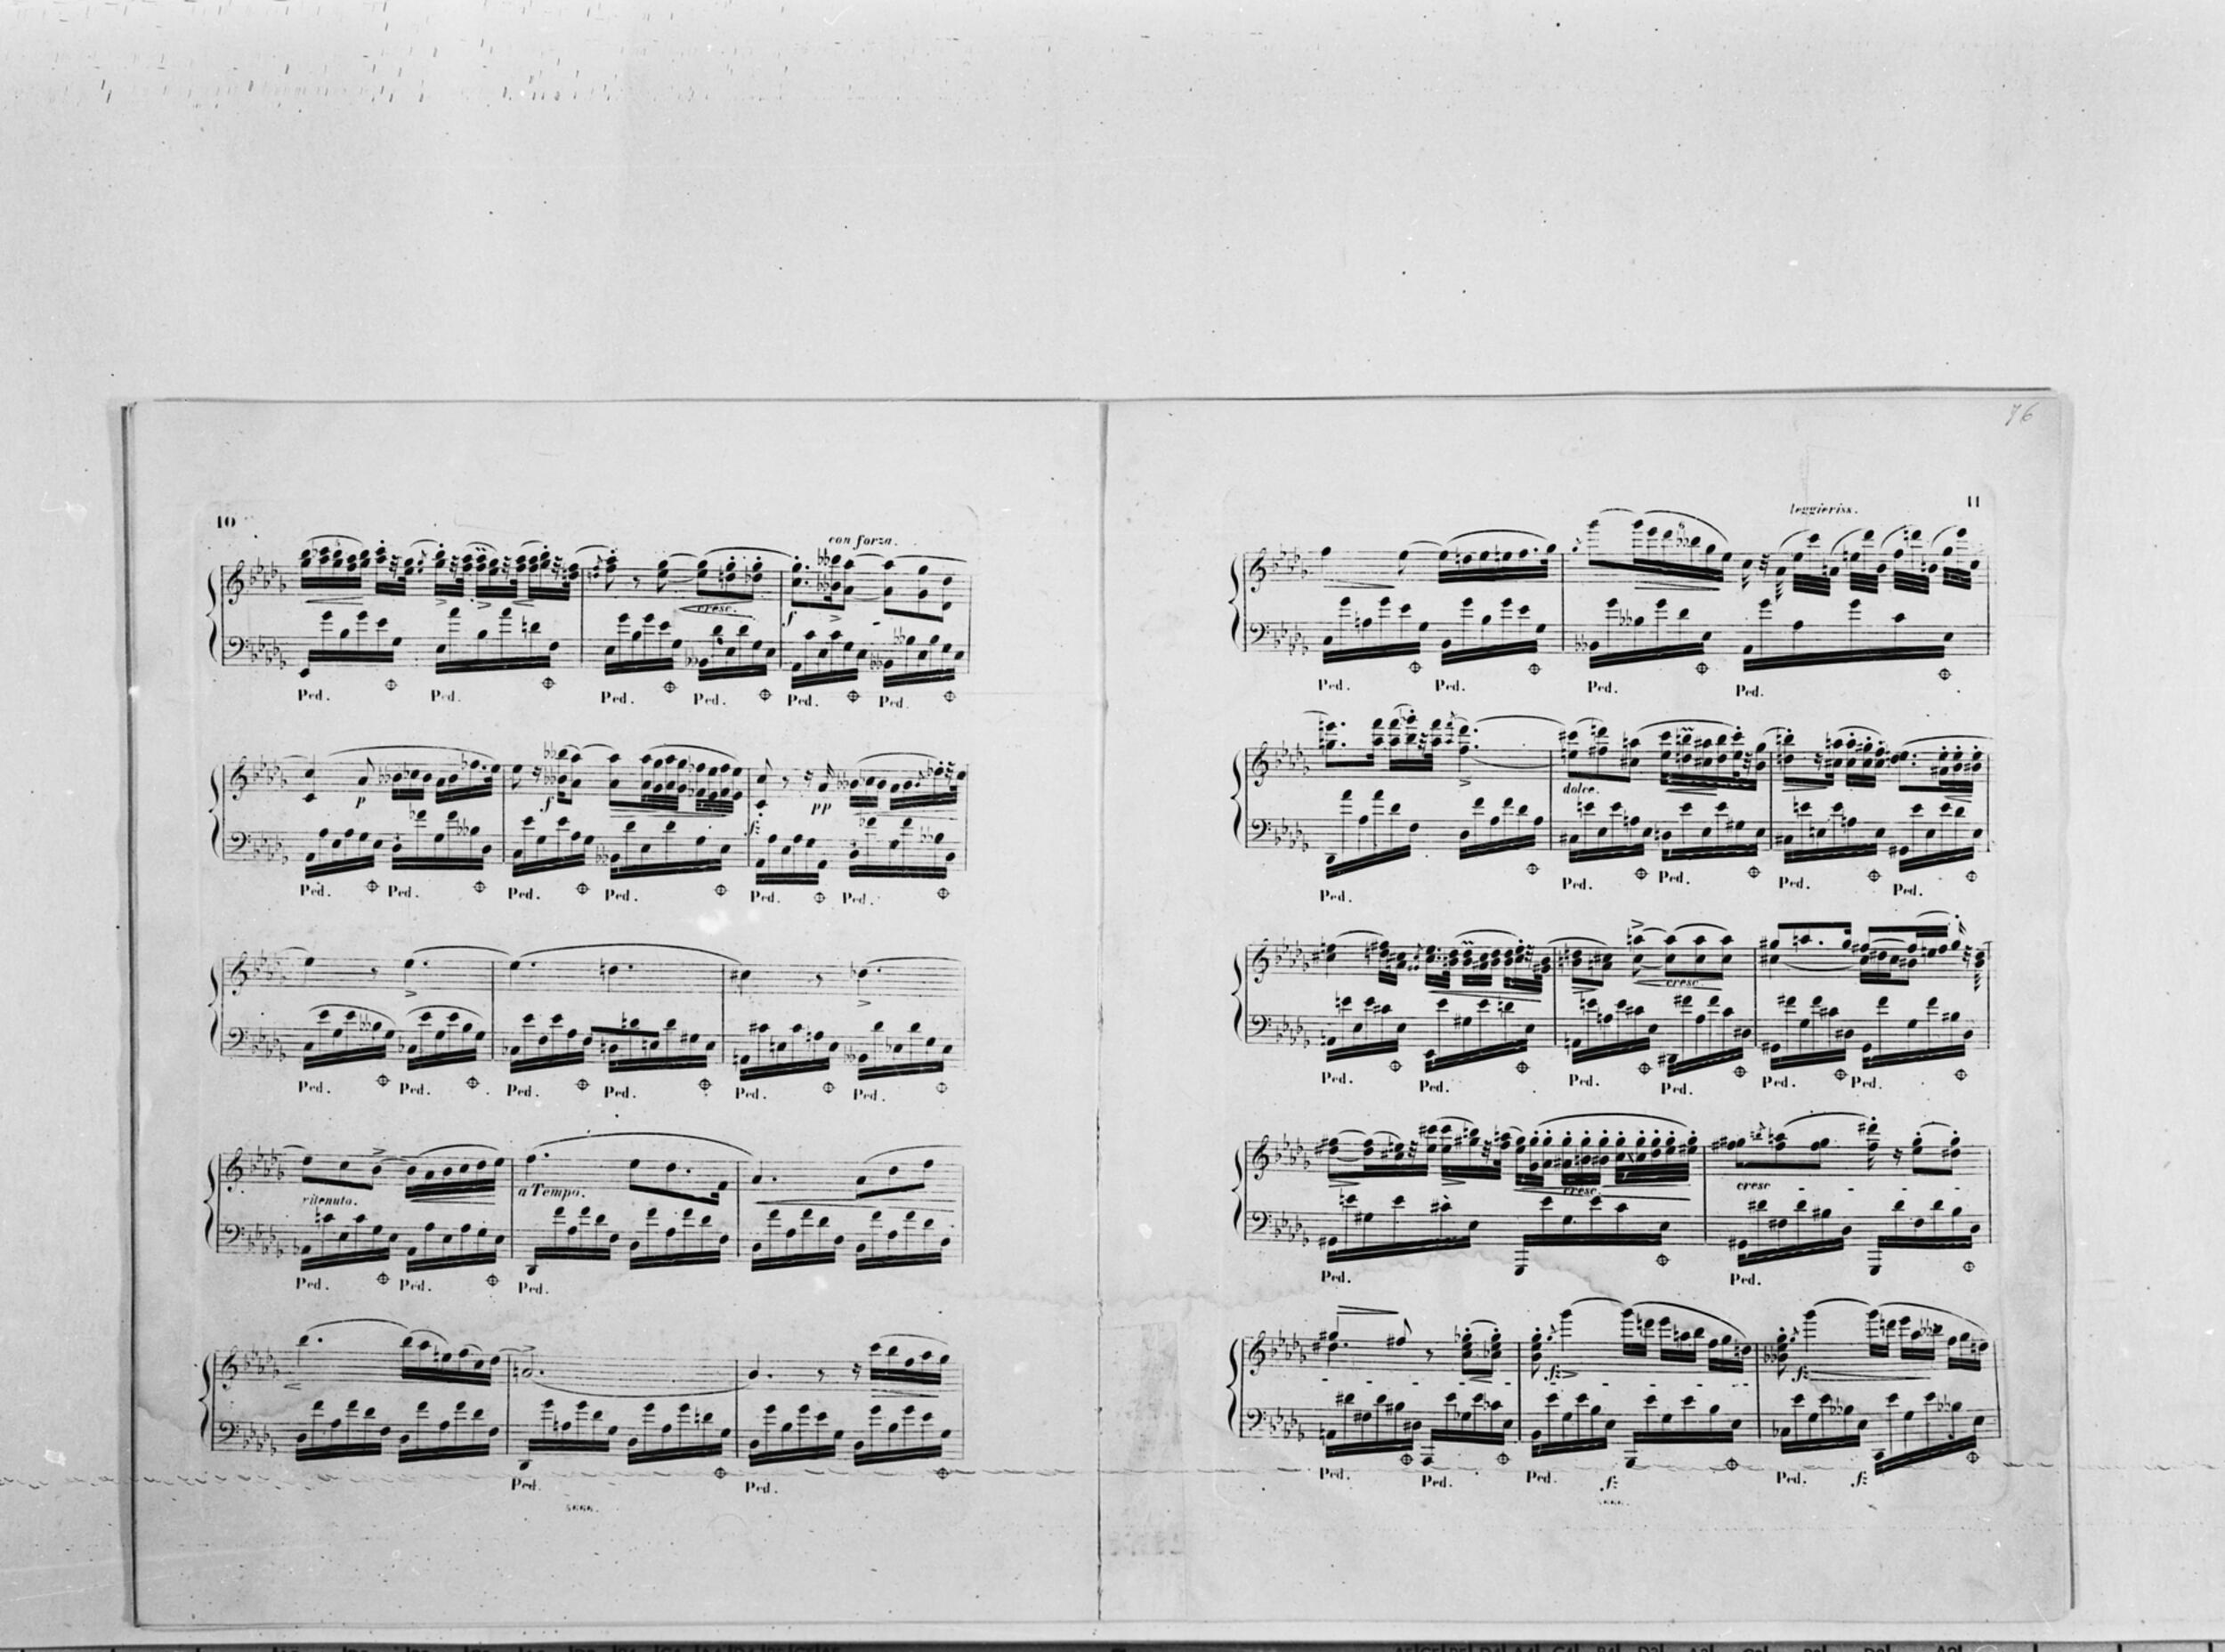 10
con forza.
cresc.
f
Ped. Ped. Ped. Ped. Ped. Ped.
p f pp
f:
Ped. Ped. Ped. Ped. Ped. Ped.
Ped. Ped. Ped. Ped. Ped. Ped.
ritenuto. a Tempo.
Ped. Ped. Ped.
Ped. Ped.
76
11
leggieriss.
6
Ped. Ped. Ped. Ped.
dolce.
Ped. Ped. Ped. Ped. Ped.
cresc.
Ped. Ped. Ped. Ped. Ped. Ped.
cresc. cresc - - - -
Ped. Ped.
f: f:
Ped. Ped. Ped. f: Ped. f: